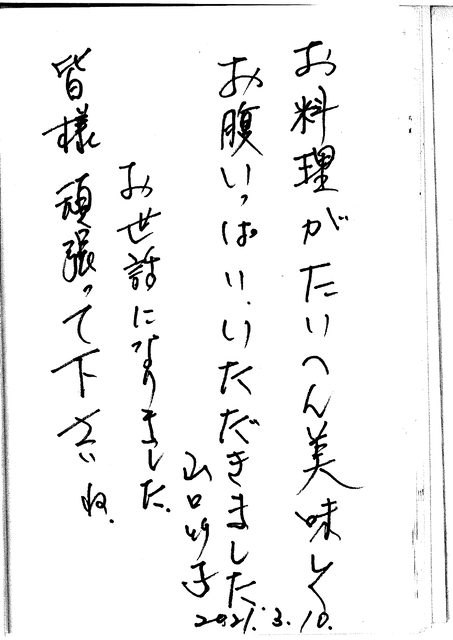 お料理がたいへん美味しく
お腹いっぱい、いただきました
お世話になりました。
皆様頑張って下さいね。
山口
子
2021. 3. 10.